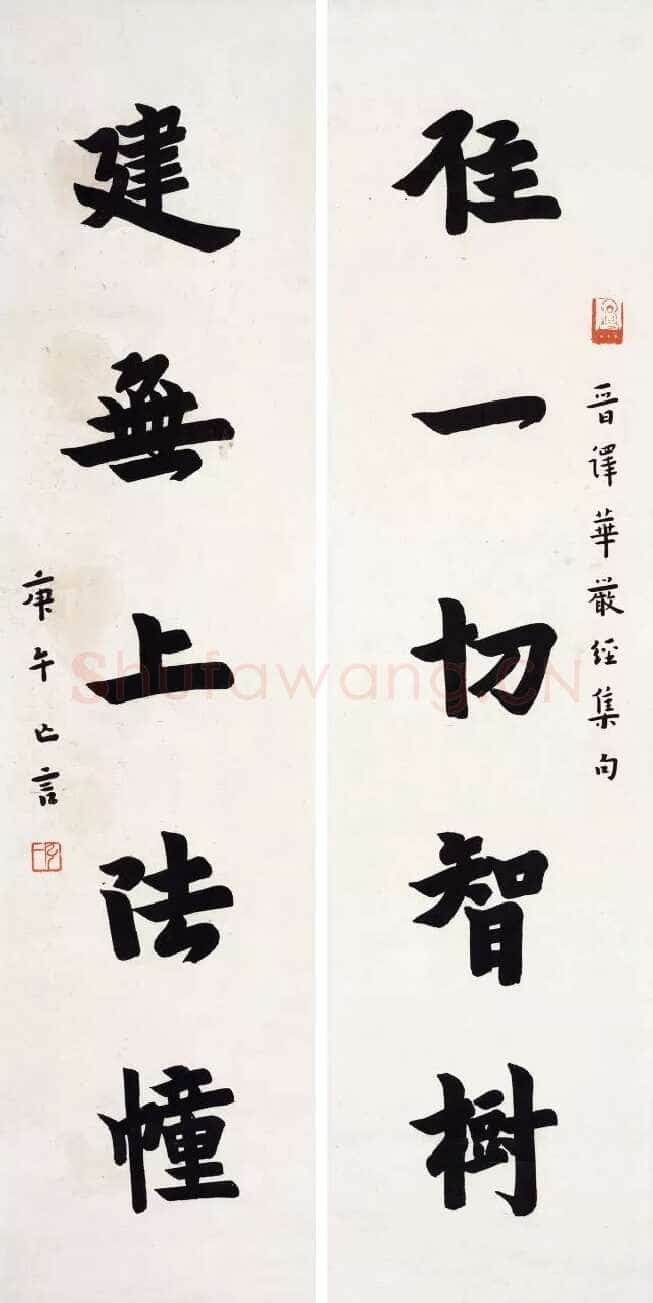 一切智樹
晉譯華嚴經集句
建無上法幢
庚午亡言
Shufawang.CN